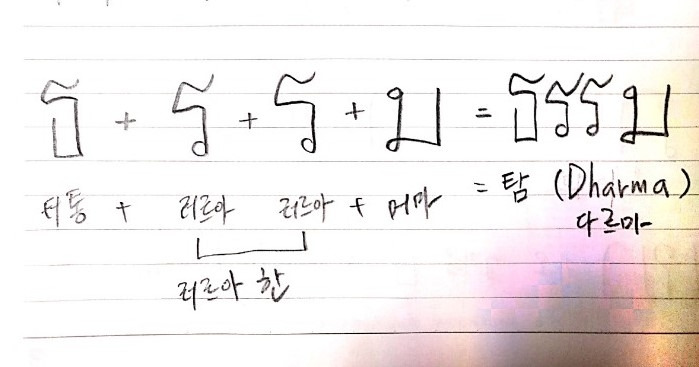 ธ + ร + ร + ม = ธรรม
터통 + 러르아 러르아 + 머마 = 탐 (Dharma)
다르마
러르아 한